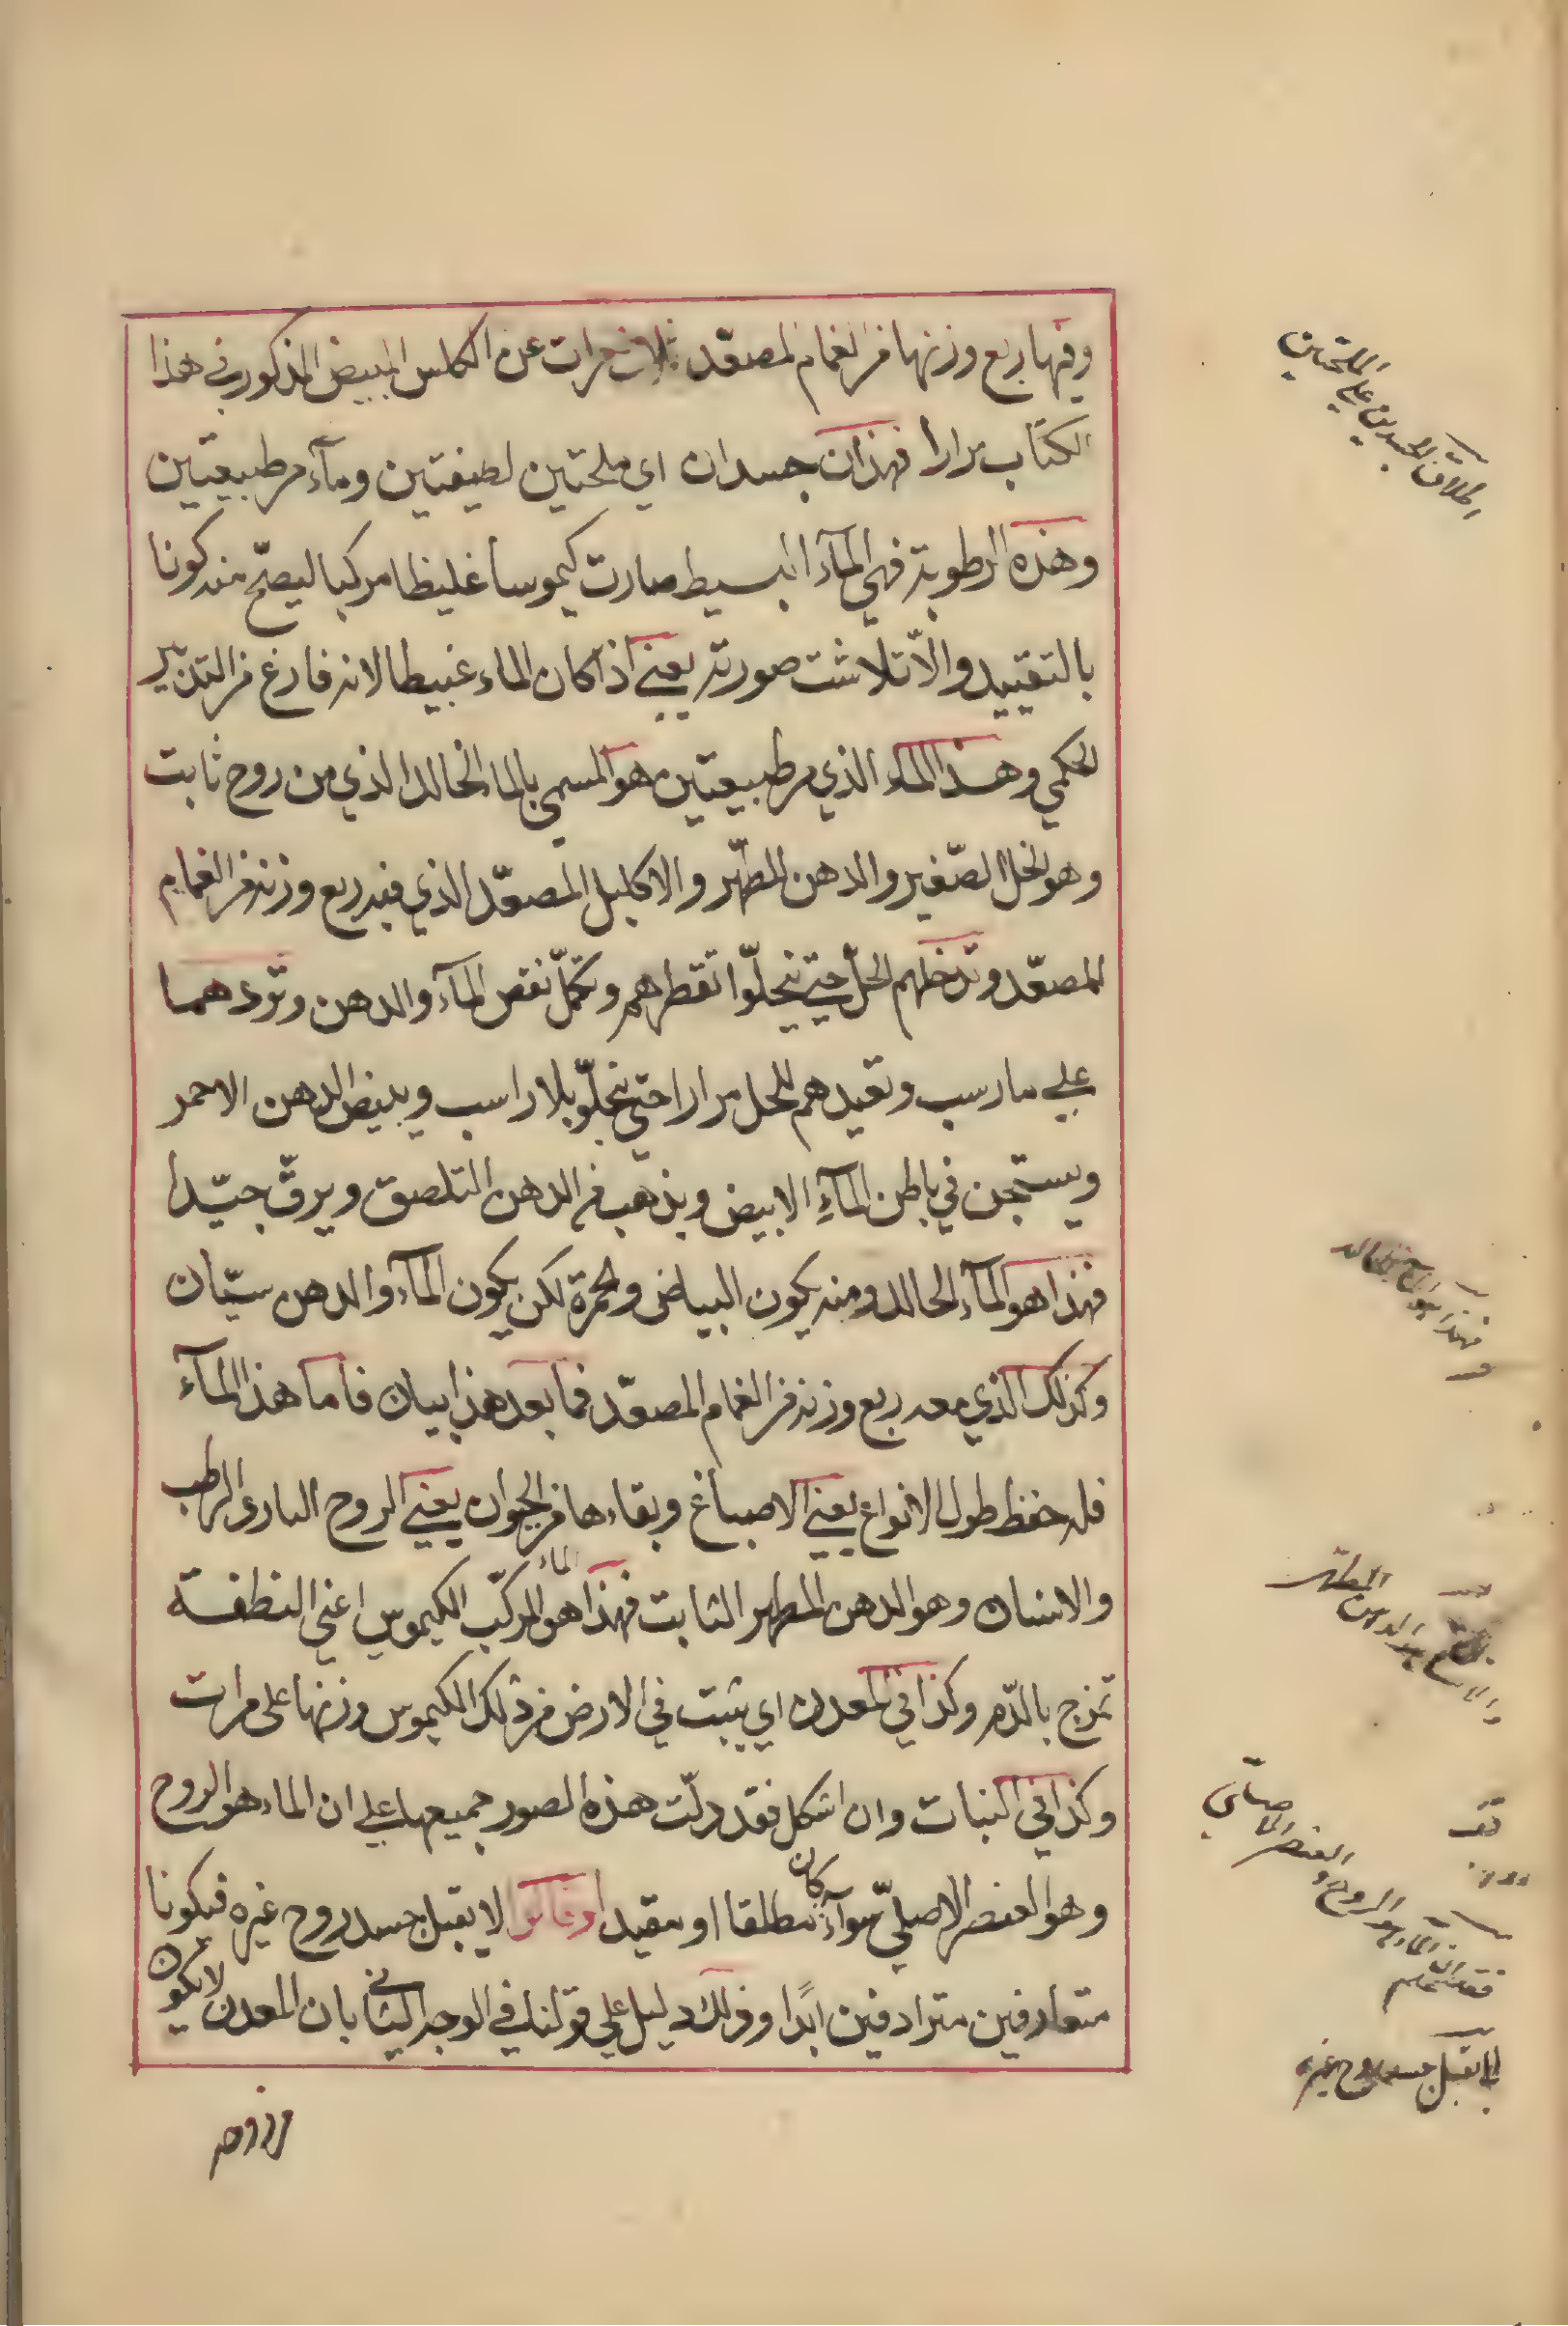 وفيها ربع وزنها من الغمام المصعّد ثلاث مرات عن الكلس المبيض المذكور في هذا
الكتاب مرارا فهذان جسدان اي ملحتين لطيفتين ومآء من طبيعتين
وهذه الرطوبة فهي المآء البسيط صارت كيموسا غليظا مركبا ليصحّ منه كونا
بالتقييد والّا تلاشت صورته يعني اذا كان الماء غبيطا لانه فارغ من التدبير
الحكمي وهذا الماء الذي من طبيعتين هو المسمي بالماء الخالد الذي من روح ثابت
وهو الخل الصّغير والدهن المطهّر والاكليل المصعّد الذي فيه ربع وزنه من الغمام
المصعّد وتدخلهم الحلّ حتي ينحلّوا تقطرهم وتكمّل نقص المآء والدهن وتردهما
علي ما رسب وتعيدهم للحل مرارا حتي ينحلّو بلا راسب ويبيض الدهن الاحمر
ويستجن في باطن المآءِ الابيض ويذهب من الدهن التلصق ويرقّ جيّدا
فهذا هو المآء الخالد ومنه يكون البياض والحمرة لكن يكون المآء والدهن سيّان
وكذلك الذي معه ربع وزنه من الغمام المصعّد فما بعد هذا بيان فاما هذا المآء
فله حفظ طول الانواع يعني الاصباغ وبقاءها من الحيوان يعني الروح البارد الرطب
والانسان وهو الدهن المطهر الثابت فهذا هو الماء المركّب الكيموس اعني النطفة
تمزج بالدّم وكذا في المعدن اي يثبت في الارض من ذلك الكيموس وزنها على مرات
وكذا في النبات وان اشكل فقد دلّت هذه الصور جميعها علي ان الماء هو الروح
وهو العنصر الاصليّ سوآء كان مطلقا او مقيدا لا يقبل جسد روح غيره فيكونا
متعارفين مترادفين ابدًا وذلك دليل علي قولنا في الوجه الثاني بان المعدن لا يكون
اطلاق الجسدين علي الملحتين
فهذا هو المآء الخالد
الدهن المطهر
قف
الماء هو الروح والعنصر الاصلي
لا يقبل جسد روح غيره